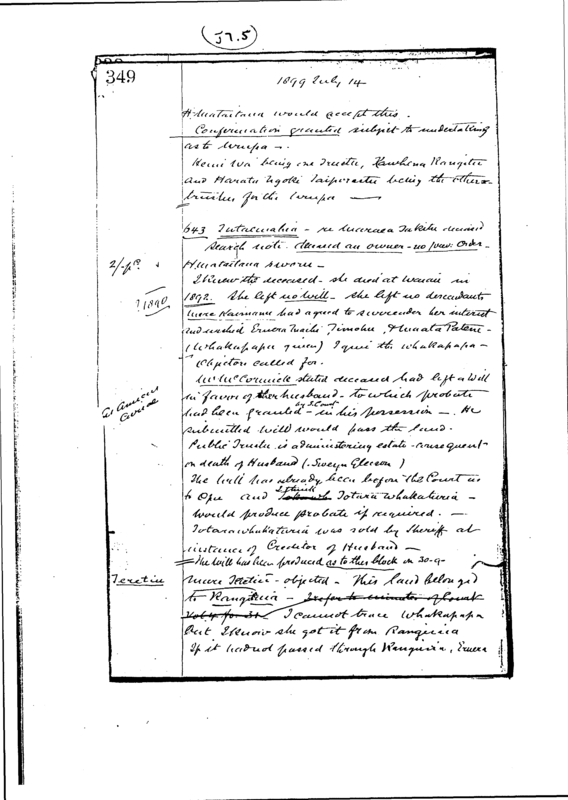 (J7.5)
349
1899 July 14
H. Mataitana would accept this.
Confirmation granted subject to undertaking
as to Wrupa —.
being one Trustee, Kawhena Rangitu
and Harata Ngoki being the other
for the Wrupa —
643 Totaemahia — re deceased
Search note. deceased an owner - no Order -
2/- pd.
H. Mataitana sworn —
I knew the deceased - she died at Wanui in
? 1890
1892. She left no will - she left no descendants
had agreed to surrender her interest
and wished Eruera Timohu,
(Whakapapa given) I give the whakapapa —
Objectors called for.
Mr McCormick stated deceased had left a will
in favor of her husband - to which probate
by S. Court
had been granted - in his possession —. He
submitted will would pass the land.
Public Trustee is administering estate - consequent
on death of Husband (Sweyn Gleeson)
The will has already been before the Court as
I think
to Ope and Totara Whakaturia —
would produce probate if required. —
Totarawhakaturia was sold by Sheriff at
instance of Creditor of Husband —
The will has been produced as to this block on 30-9-
Teretiu
Teretiu - objected - This land belonged
to Ranguia - I refer to minutes of Court
Vol 4 for 31. I cannot trace whakapapa
but I know she got it from Ranguia
If it had not passed through Ranguia, Eruera